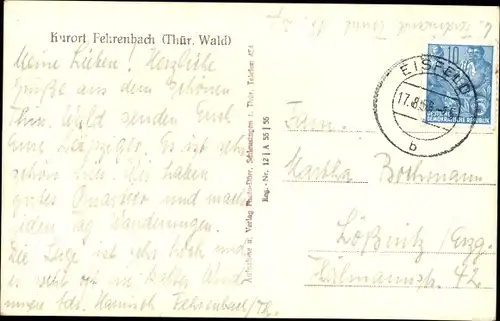 Kurort Fehrenbach (Thür. Wald)
Meine Lieben! Herzliche
Grüße aus dem schönen
Thür. Wald senden Euch
Eine Leipziger. Es ist sehr
schön hier. Wir haben
gutes Quartier und machen
jeden Tag Wanderungen.
Die Lage ist sehr hoch und
es weht oft ein kalter Wind
Fehrenbach/Th.
Aufnahme u. Verlag Schleusingen i. Thür. Telefon 454
Reg.-Nr. 12 | A 55 | 55
10
DEUTSCHE
DEMOKRATISCHE REPUBLIK
EISFELD
17.8.56
b
Fam.
Martha Bochmann
Lößnitz/Erzg.
42